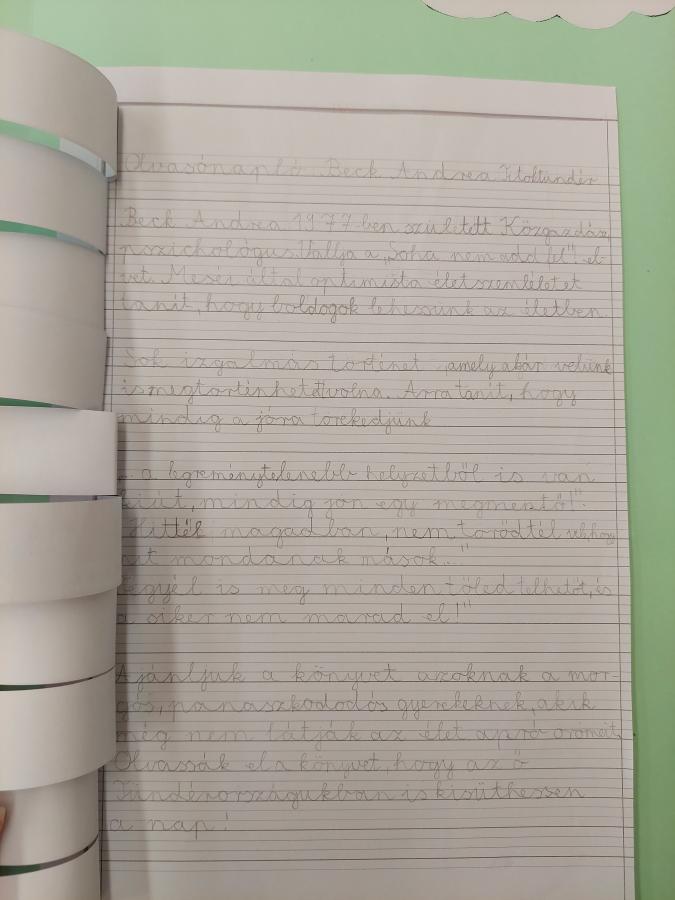 Olvasónapló Beck Andrea Titoktündér
Beck Andrea 1977-ben született Közgazdász,
pszichológus. Vallja a „Soha nem add fel"! el-
vet. Meséi által optimista életszemléletet
tanít, hogy boldogok lehessünk az életben.
Sok izgalmas történet, amely akár velünk
is megtörténhetett volna. Arra tanít, hogy
mindig a jóra törekedjünk
... a legreménytelenebb helyzetből is van
kiút, mindig jön egy megmentő!"
Hittél magadban, nem törődtél hogy
mit mondanak mások..."
Tégyél is meg minden tőled telhetőt, és
a siker nem marad el!"
Ajánljuk a könyvet azoknak a mor-
gós, panaszkododós gyerekeknek, akik
még nem látják az élet apró örömeit.
Olvassák el a könyvet, hogy az ő
Tündérországukban is kisüthessen
a nap!